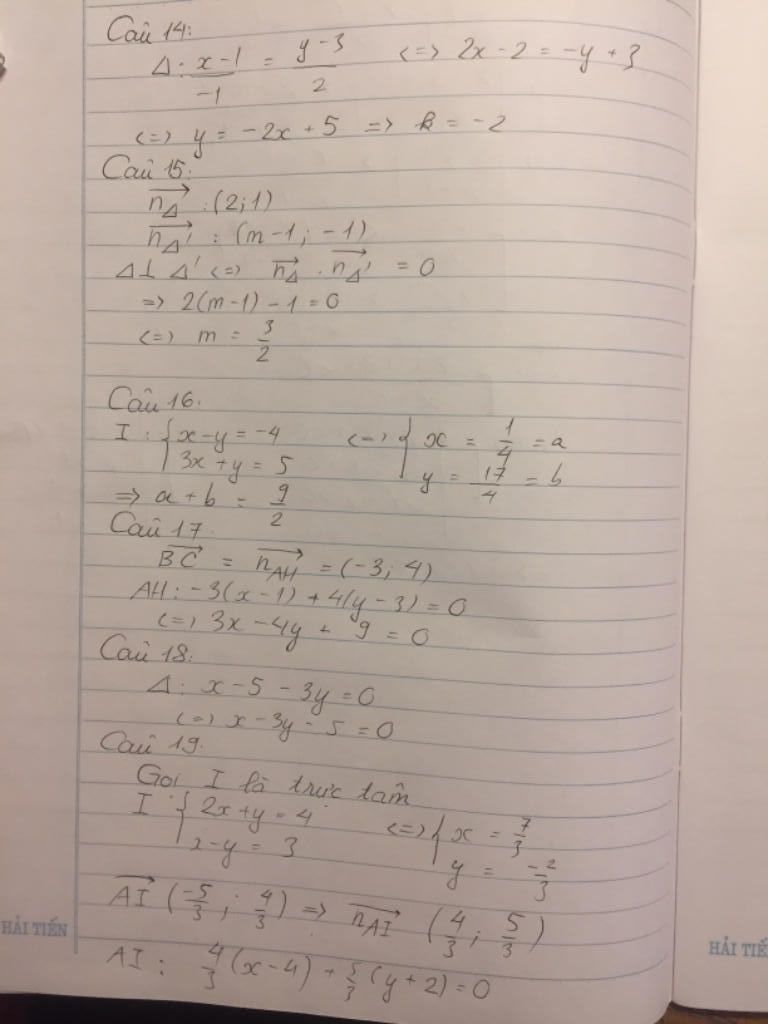 Câu 14:
Δ: x-1/-1 = y-3/2 <=> 2x-2 = -y+3
<=> y = -2x+5 => k = -2
Câu 15:
n_Δ→ : (2;1)
n_Δ'→ : (m-1; -1)
Δ⊥Δ' <=> n_Δ→ . n_Δ'→ = 0
=> 2(m-1) - 1 = 0
<=> m = 3/2
Câu 16:
I: { x-y = -4 <=> { x = 1/4 = a
3x+y = 5 y = 17/4 = b
=> a+b = 9/2
Câu 17
BC→ = n_AH→ = (-3; 4)
AH: -3(x-1) + 4(y-3) = 0
<=> 3x-4y + 9 = 0
Câu 18:
Δ: x-5-3y=0
<=> x-3y-5 = 0
Câu 19:
Gọi I là trực tâm
I: { 2x+y = 4 <=> { x = 7/3
x-y = 3 y = -2/3
AI→ (-5/3; 4/3) => n_AI→ (4/3; 5/3)
AI: 4/3(x-4) + 5/3(y+2) = 0
HẢI TIẾN
HẢI TIẾ